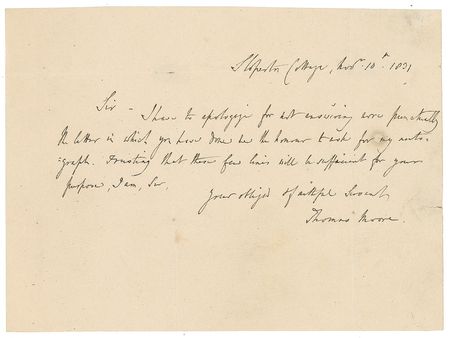 Sloperton Cottage, Novr. 10th. 1831
Sir - I have to apologize for not answering more punctually
the letter in which you have done me the honour to ask for my auto-
-graph. Trusting that these few lines will be sufficient for your
purpose, I am, Sir,
Your obliged & faithful Servant
Thomas Moore.